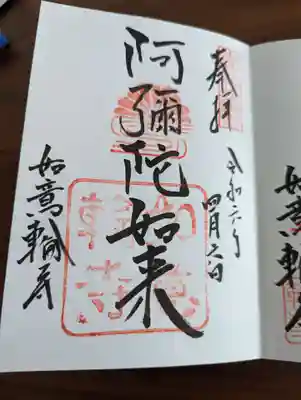 奉拝
令和六年
四月六日
阿彌陀如来
如意輪寺